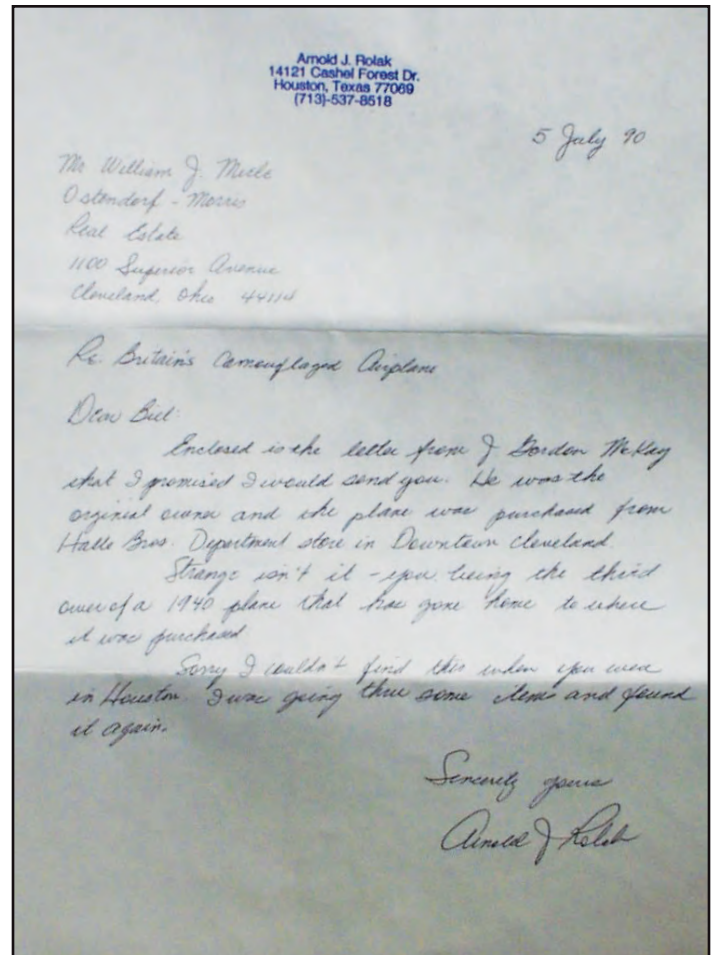 Arnold J. Rolak
14121 Cashel Forest Dr.
Houston, Texas 77069
(713)-537-8518
5 July 90
Mr William J. Miele
Ostendorf - Morris
Real Estate
1100 Superior Avenue
Cleveland, Ohio 44114
Re: Britain's Camouflaged Airplane
Dear Bill:
Enclosed is the letter from J Gordon McKay
that I promised I would send you. He was the
orginial owner and the plane was purchased from
Halle Bros. Department store in Downtown Cleveland.
Strange isn't it - you being the third
owner of a 1940 plane that has gone home to where
it was purchased
Sorry I couldn't find this when you were
in Houston. I was going thru some items and found
it again.
Sincerely yours
Arnold J Rolak